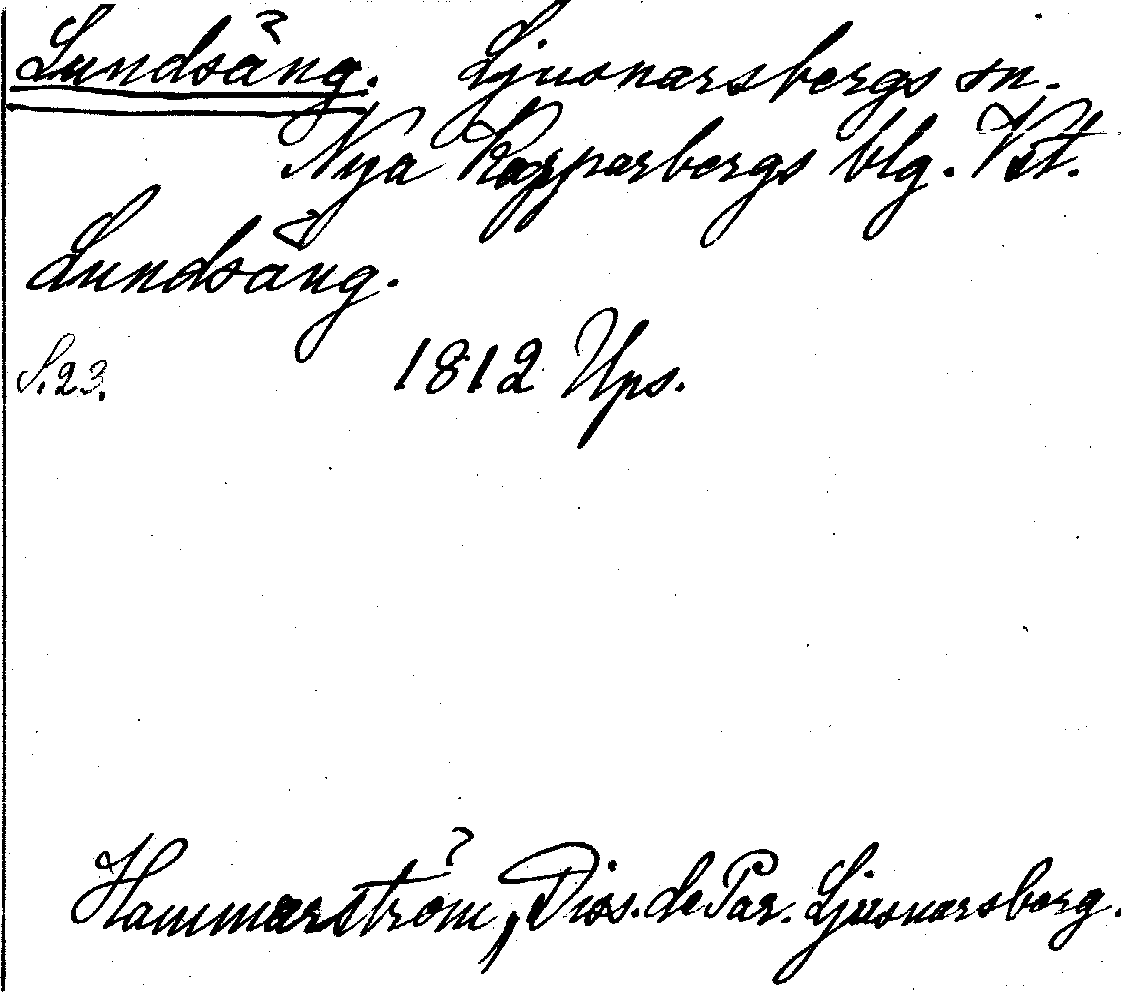 Lundsäng. Ljusnarsbergs sn.
Nya Kopparbergs blg. Vstm.
Lundsäng.
S. 23. 1812 Ups.
Hammarström, Diss. de Par. Ljusnarsberg.